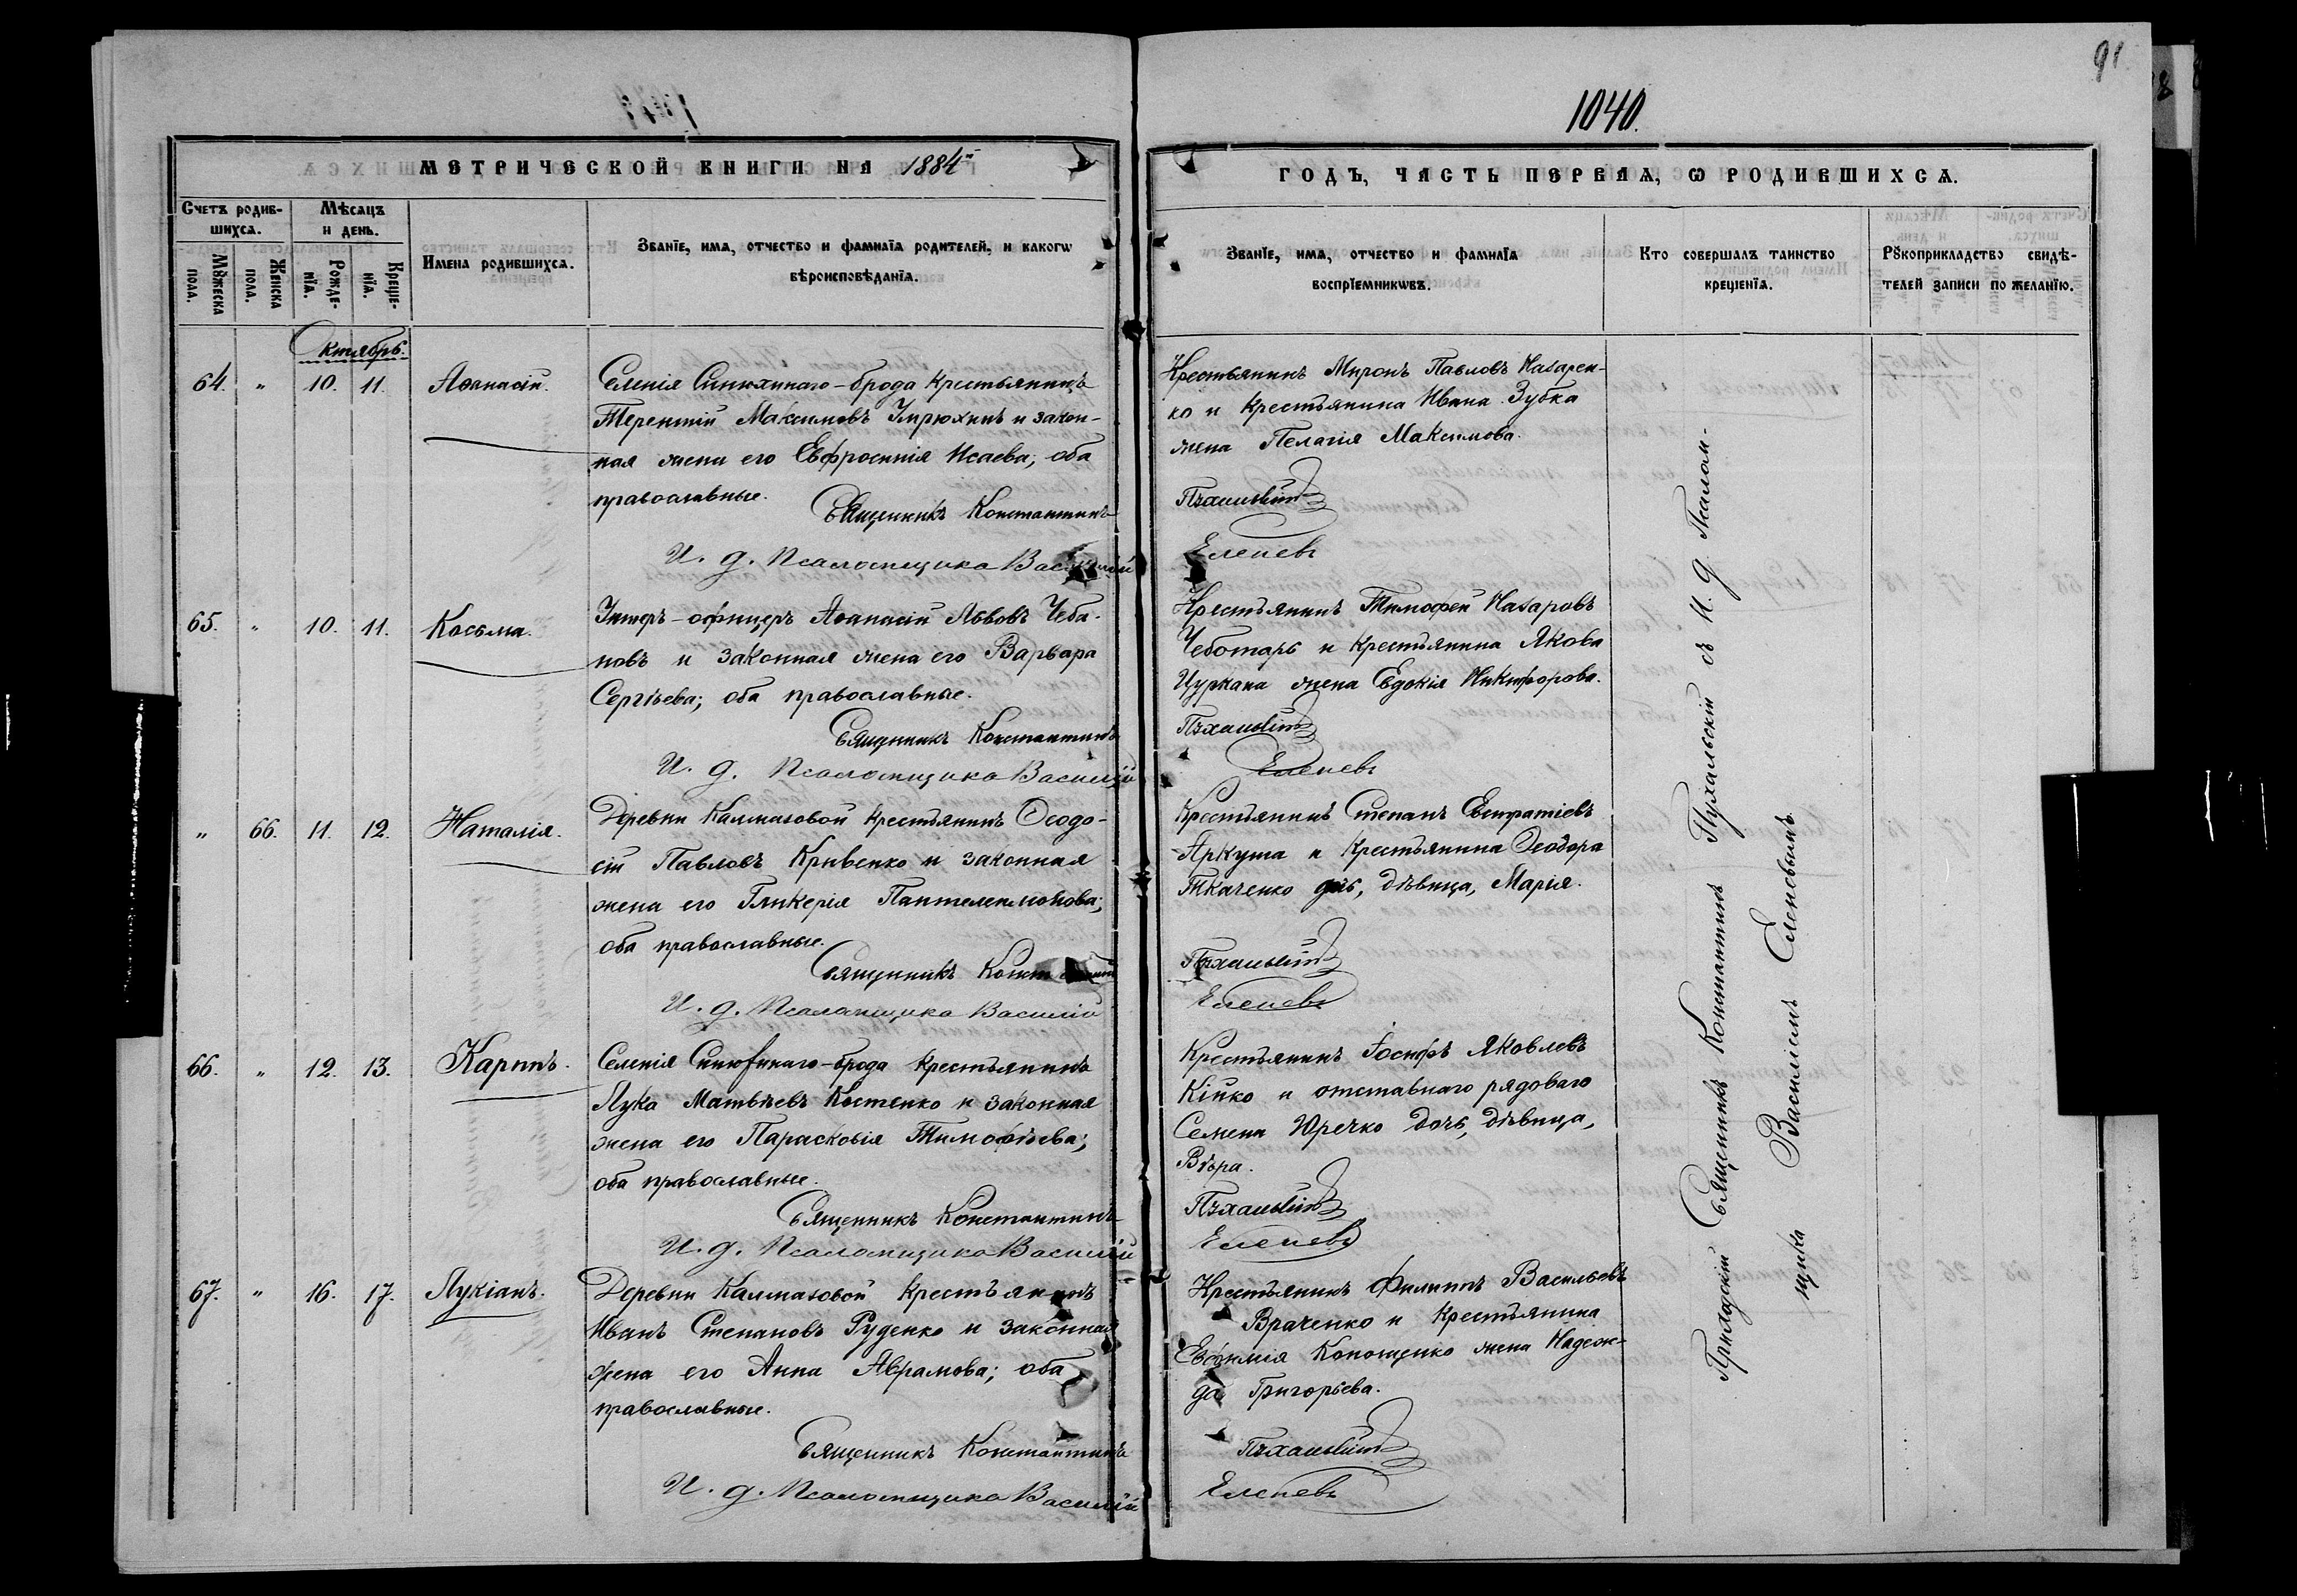 91
1040.
МЕТРИЧЕСКОЙ КНИГИ НА 1884й
ГОДЪ, ЧАСТЬ ПЕРВАЯ, Ѡ РОДИВШИХСѦ.
Счетъ родив-
шихсѧ.
Мѣсѧцъ
и день.
Мꙋжеска
пола.
Женска
пола.
Рожде-
нїѧ.
Креще-
нїѧ.
Имена родившихсѧ.
Званїе, имѧ, отчество и фамилїѧ родителей, и какогѡ
вѣроисповѣданїѧ.
Званїе, имѧ, отчество и фамилїѧ
воспрїемникѡвъ.
Кто совершалъ таинство
крещенїѧ.
Рꙋкоприкладство свидѣ-
телей записи по желанїю.
Октябрь.
64. " 10. 11. Аѳанасій.
Селенія Синюхинаго-брода крестьянинъ
Терентій Максимовъ и закон-
ная жена его Евфросинія Исаева; оба
православные.
Священникъ Константинъ
И. д. Псаломщика Василій
Крестьянинъ Миронъ Павловъ Назарен-
ко и крестьянина Ивана Зубка
жена Пелагія Максимова.
Пухальскій
Еленевъ
65. " 10. 11. Косьма.
Унтеръ-офицеръ Аѳанасій Львовъ Чеба-
новъ и законная жена его Варвара
Сергѣева; оба православные.
Священникъ Константинъ
И. д. Псаломщика Василій
Крестьянинъ Тимофей Назаровъ
Чеботарь и крестьянина Якова
Цуркана жена Евдокія Никифорова.
Пухальскій
Еленевъ
" 66. 11. 12. Наталія.
Деревни Калмазовой крестьянинъ Ѳеодо-
сій Павловъ Кривенко и законная
жена его Гликерія Пантелеимонова;
оба православные.
Священникъ Константинъ
И. д. Псаломщика Василій
Крестьянинъ Степанъ Евстратіевъ
Аркуша и крестьянина Ѳеодора
Ткаченко дочь, дѣвица, Марія.
Пухальскій
Еленевъ
66. " 12. 13. Карпъ.
Селенія Синюхинаго-брода крестьянинъ
Лука Матвѣевъ Костенко и законная
жена его Парасковія Тимофѣева;
оба православные.
Священникъ Константинъ
И. д. Псаломщика Василій
Крестьянинъ Іосифъ Яковлевъ
Кійко и отставнаго рядоваго
Семена Юречко дочь, дѣвица,
Вѣра.
Пухальскій
Еленевъ
67. " 16. 17. Лукіанъ.
Деревни Калмазовой крестьянинъ
Иванъ Степановъ Руденко и законная
жена его Анна Аврамова; оба
православные.
Священникъ Константинъ
И. д. Псаломщика Василій
Крестьянинъ Филиппъ Васильевъ
Враченко и крестьянина
Евфимія Кономенко жена Надеж-
да Григорьева.
Пухальскій
Еленевъ
Приходскій Священникъ Константинъ Пухальскій съ И. д. Псалом-
щика Василіемъ Еленевымъ